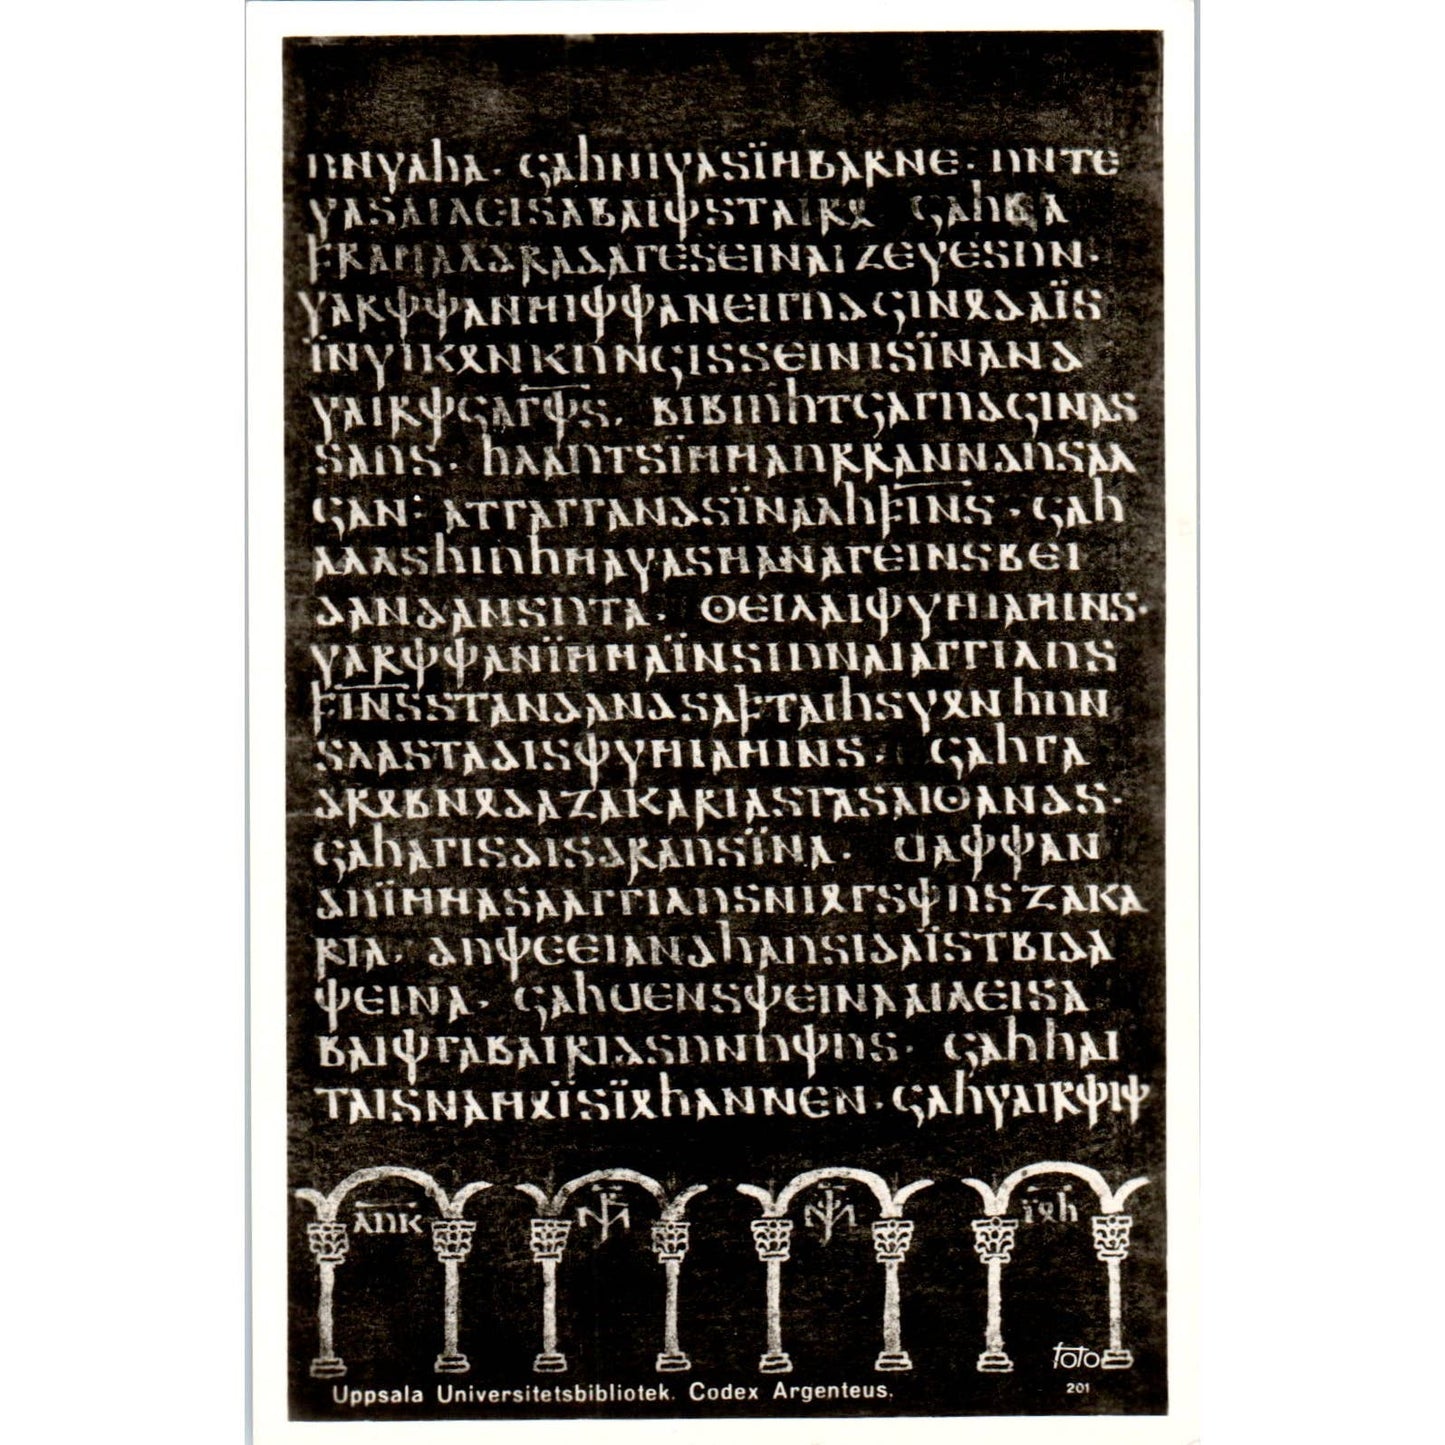 𐌿𐌽𐍅𐌰𐌷𐌰· 𐌾𐌰𐌷𐌽𐌹𐍅𐌰𐍃𐌹̈𐌼𐌱𐌰𐍂𐌽𐌴· 𐌿𐌽𐍄𐌴
𐍅𐌰𐍃𐌰𐌹𐌻𐌴𐌹𐍃𐌰𐌱𐌰𐌹̈𐌸𐍃𐍄𐌰𐌹𐍂𐍉 𐌾𐌰𐌷𐌱𐌰
𐍆𐍂𐌰𐌼𐌰𐌻𐌳𐍂𐌰𐌳𐌰𐌲𐌴𐍃𐌴𐌹𐌽𐌰𐌹𐌶𐌴𐍅𐌴𐍃𐌿𐌽·
𐍅𐌰𐍂𐌸𐌸𐌰𐌽𐌼𐌹𐌸𐌸𐌰𐌽𐌴𐌹𐌲𐌿𐌳𐌾𐌹𐌽𐍉𐌳𐌰𐌹̈𐍃
𐌹̈𐌽𐍅𐌹𐌺𐍉𐌽𐌺𐌿𐌽𐌾𐌹𐍃𐍃𐌴𐌹𐌽𐌹𐍃𐌹̈𐌽𐌰𐌽𐌳
𐍅𐌰𐌹𐍂𐌸𐌾𐌰𐌲̅𐌸̅𐍃· 𐌱𐌹𐌱𐌹𐌿𐌷𐍄𐌾𐌰𐌲𐌿𐌳𐌾𐌹𐌽𐌰𐍃
𐍃𐌰𐌿𐍃· 𐌷𐌻𐌰𐌿𐍄𐍃𐌹̈𐌼𐌼𐌰𐌿𐍂𐍂𐌰𐌽𐌽𐌳𐌿𐍃𐌰𐌻
𐌾𐌰𐌽: 𐌰𐍄𐌲𐌰𐌲𐌲𐌰𐌽𐌳𐍃𐌹̈𐌽𐌰𐌻𐌷𐍆𐌹̅𐌽̅𐍃· 𐌾𐌰𐌷
𐌰𐌻𐌻𐍃𐌷𐌹𐌿𐌷𐌼𐌰𐍅𐌰𐍃𐌼𐌰𐌽𐌰𐌲𐌴𐌹𐌽𐍃𐌱𐌴𐌹
𐌳𐌰𐌽𐌳𐌰𐌽𐍃𐌿𐍄𐌰· 𐍈𐌴𐌹𐌻𐌰𐌹𐌸𐍅𐌼𐌹𐌰𐌼𐌹𐌽𐍃·
𐍅𐌰𐍂𐌸𐌸𐌰𐌽𐌹̈𐌼𐌼𐌰𐌹̈𐌽𐍃𐌹𐌿𐌽𐌰𐌹𐌰𐌲𐌲𐌹𐌻𐌿𐍃
𐍆𐌹̅𐌽̅𐍃𐍃𐍄𐌰𐌽𐌳𐌰𐌽𐌳𐍃𐌰𐍆𐍄𐌰𐌹𐌷𐍃𐍅𐍉𐌽𐌷𐌿𐌽
𐍃𐌻𐌰𐍃𐍄𐌰𐌳𐌹𐍃𐌸𐍅𐌼𐌹𐌰𐌼𐌹𐌽𐍃· 𐌾𐌰𐌷𐌲𐌰
𐌳𐍂𐍉𐌱𐌽𐍉𐌳𐌰𐌶𐌰𐌺𐌰𐍂𐌹𐌰𐍃𐌲𐌰𐍃𐌰𐌹𐍈𐌰𐌽𐌳𐍃·
𐌾𐌰𐌷𐌰𐌲𐌹𐍃𐌳𐌹𐍃𐌳𐍂𐌰𐌿𐍃𐌹̈𐌽𐌰· 𐌵𐌰𐌸𐌸𐌰𐌽
𐌳𐌿𐌹̈𐌼𐌼𐌰𐍃𐌰𐌰𐌲𐌲𐌹𐌻𐌿𐍃𐌽𐌹𐍉𐌲𐍃𐌸𐌿𐍃𐌶𐌰𐌺𐌰
𐍂𐌹𐌰· 𐌳𐌿𐌸𐌴𐌴𐌹𐌰𐌽𐌳𐌷𐌰𐌿𐍃𐌹𐌳𐌰𐌹̈𐍃𐍄𐌱𐌹𐌳𐌰
𐌸𐌴𐌹𐌽𐌰· 𐌾𐌰𐌷𐌵𐌴𐌽𐍃𐌸𐌴𐌹𐌽𐌰𐌰𐌹𐌻𐌴𐌹𐍃𐌰
𐌱𐌰𐌹𐌸𐌲𐌰𐌱𐌰𐌹𐍂𐌹𐌳𐍃𐌿𐌽𐌿𐌸𐌿𐍃· 𐌾𐌰𐌷𐌷𐌰𐌹
𐍄𐌰𐌹𐍃𐌽𐌰𐌼𐍉𐌹̈𐍃𐌹̈𐍉𐌷𐌰𐌽𐌽𐌴𐌽· 𐌾𐌰𐌷𐍅𐌰𐌹𐍂𐌸𐌹𐌸
𐌻𐌿𐌺 𐌹̈𐍉𐌷
foto
201
Uppsala Universitetsbibliotek. Codex Argenteus.